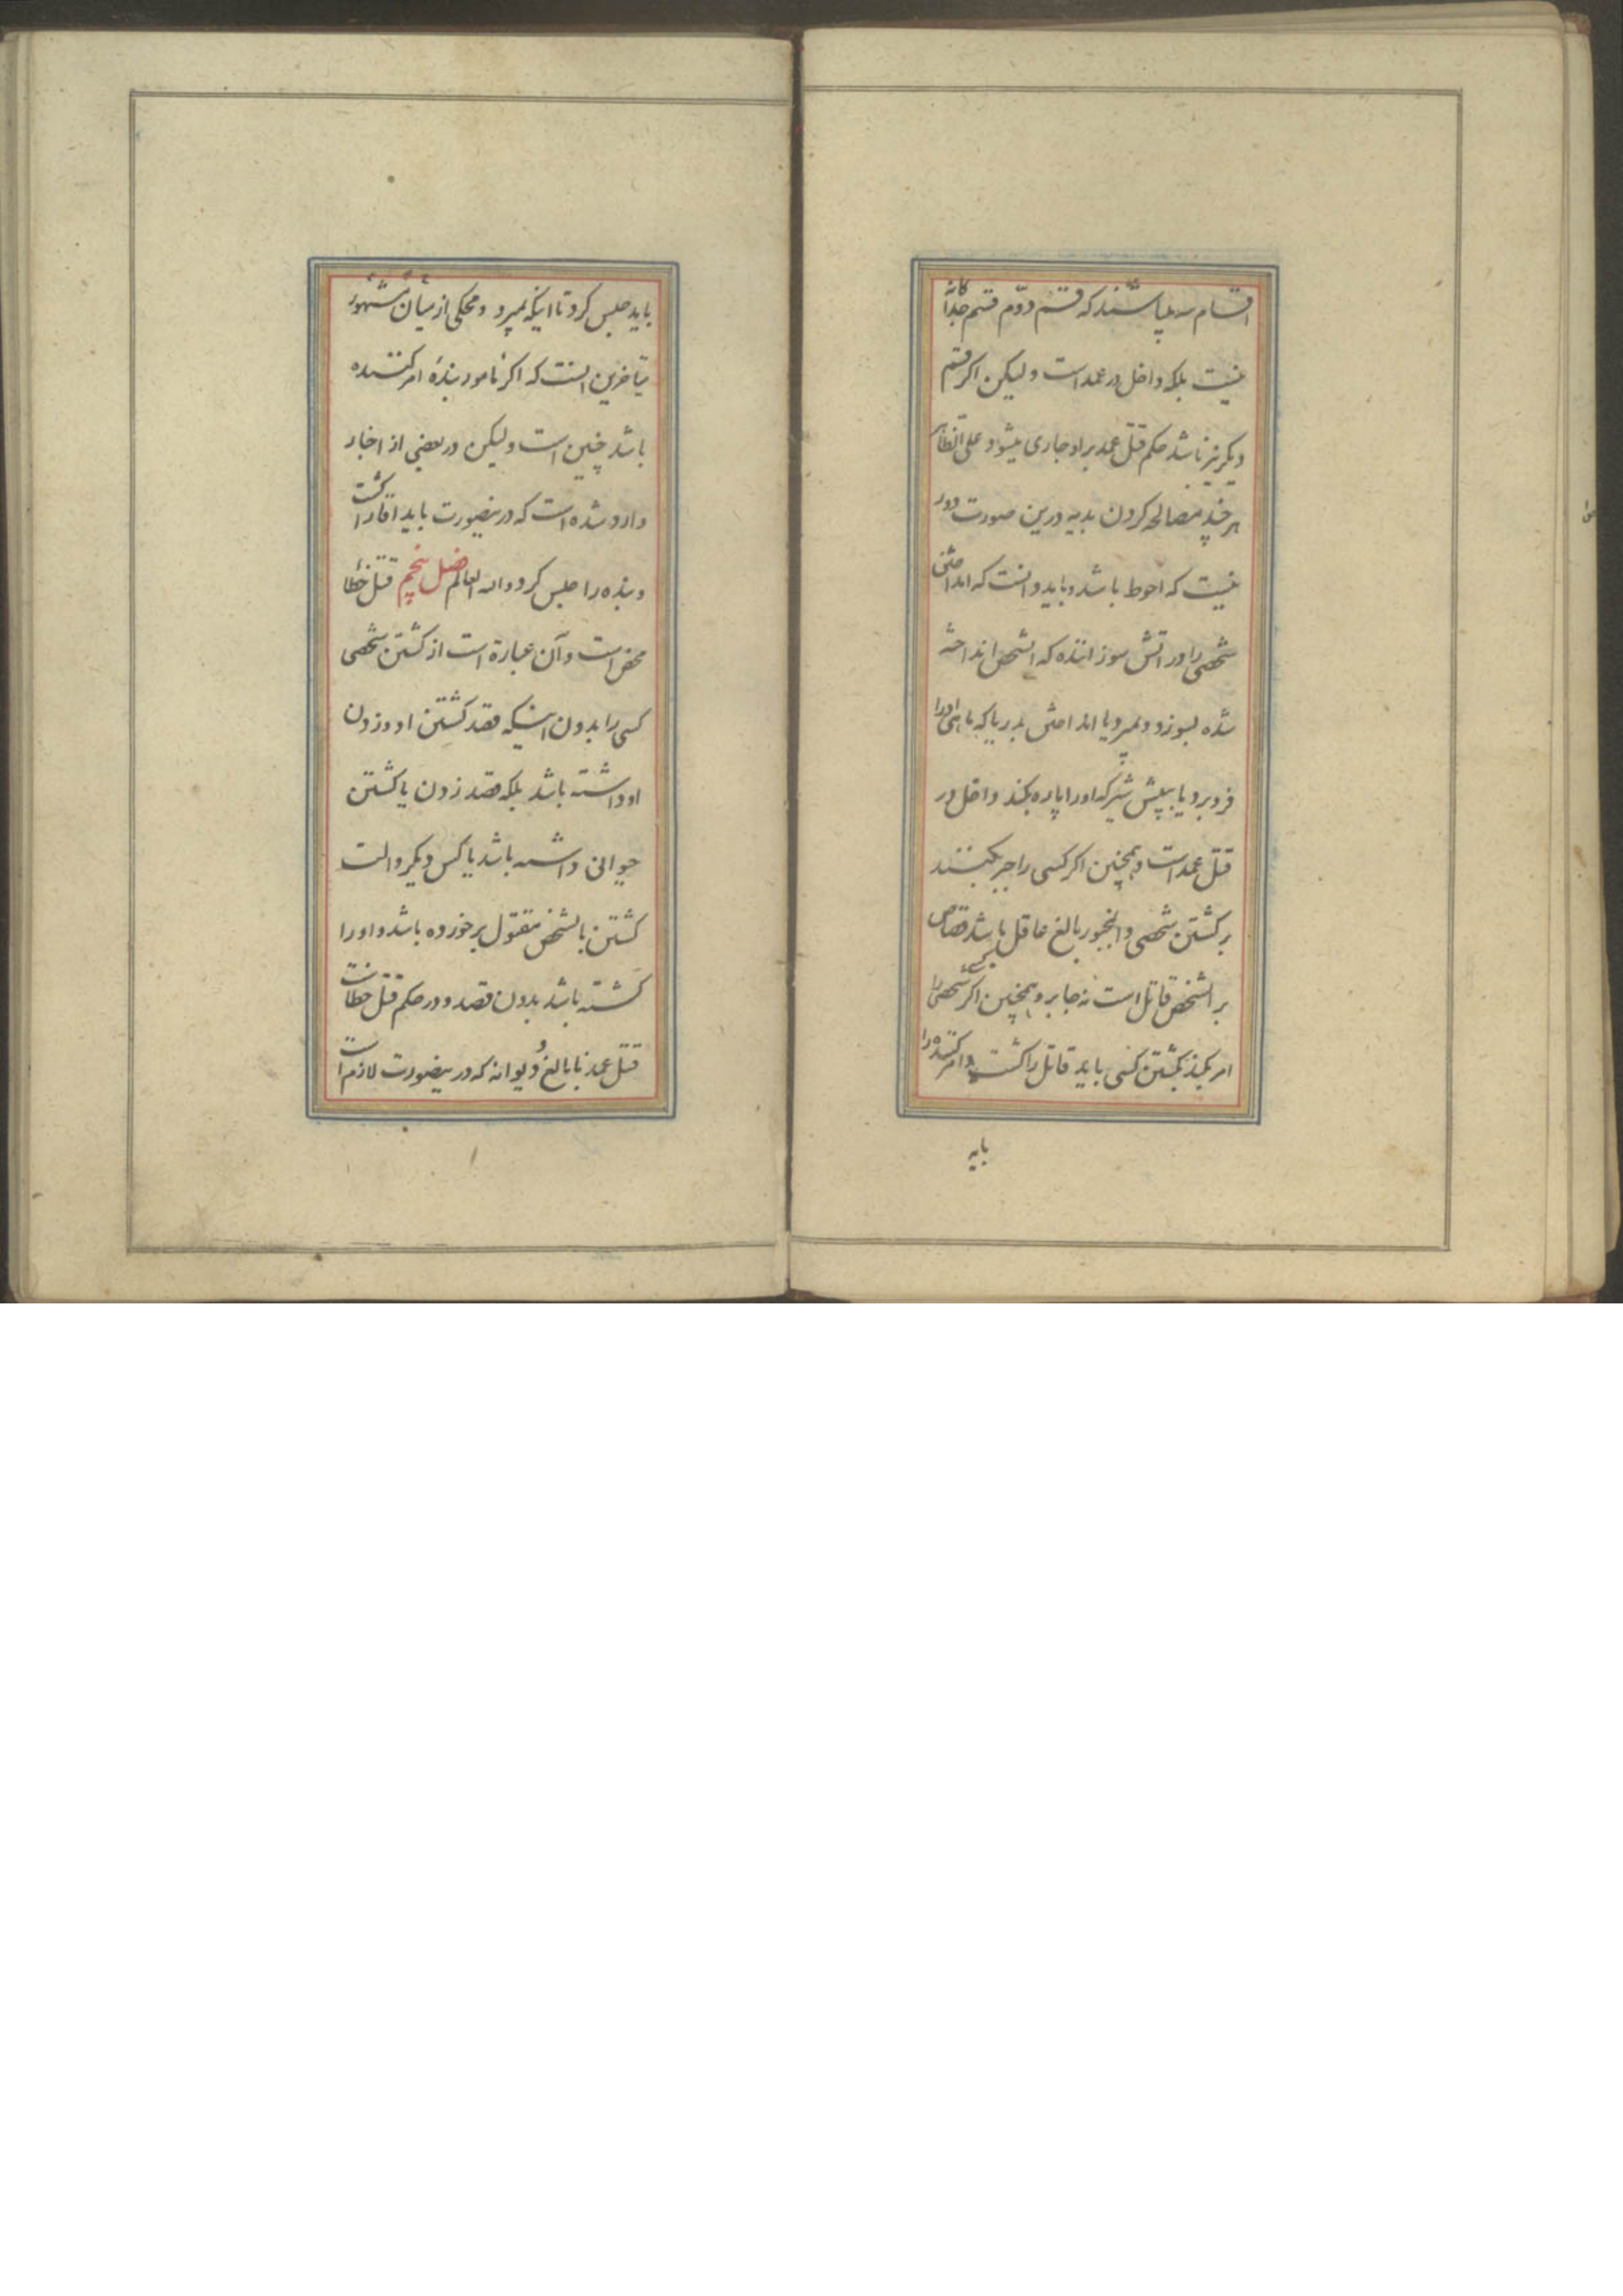 اقسام سه میباشند که قسم دوّم قسم جداگانه
نیست بلکه داخل در عمد است ولیکن اگر قسم
دیگر نیز باشد حکم قتل عمد بر او جاری میشود علی الظاهر
هر چند مصالحه کردن بدیه درین صورت دور
نیست که احوط باشد و باید دانست که انداختن
شخصی را در اتش سوزاننده که انشخص انداخته
شده بسوزد و بمیرد یا انداختن بدریا که ماهی او را
فرو برد یا پیش شیر که او را پاره بکند داخل در
قتل عمد است و همچنین اگر کسی را جبر بکنند
بر کشتن شخصی و انمجبور بالغ عاقل باشد قصاص
بر انشخص قاتل است نه جابر و همچنین اگر کسی شخصی را
امر بکند بکشتن کسی باید قاتل را کشت و امر کننده را
باید
باید حبس کرد تا اینکه بمیرد و محکی از میان مشهور
متاخرین انست که اگر مامور بندهٔ امر کننده
باشد چنین است ولیکن در بعضی از اخبار
وارد شده است که در ینصورت باید اقا را کشت
و بنده را حبس کرد و الله العالم فصل پنجم قتل خطا
محض است و آن عبارة است از کشتن شخصی
کسی را بدون اینکه قصد کشتن او و زدن
او داشته باشد بلکه قصد زدن یا کشتن
حیوانی داشته باشد یا کس دیگر و الت
کشتن بانشخص مقتول برخورده باشد و او را
کشته باشد بدون قصد و در حکم قتل خطاست
قتل عمد نابالغ و دیوانه که در ینصورت لازم است